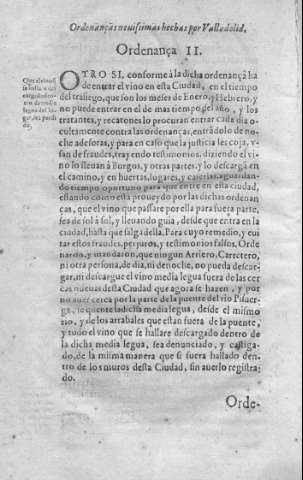 Ordenanças nuevissimas hechas por Valladolid.
Ordenança II.
OTRO SI, conforme à la dicha ordenança ha
de entrar el vino en esta Ciudad, en el tiempo
del trasiego, que son los meses de Enero, y Hebrero, y
no puede entrar en el de mas tiempo del año, y los
tratantes, y recatones lo procuran entrar cada dia o-
cultamente contra las ordenanças, entrãdolo de no-
che à desoras, y para en caso que la justicia les coja, v-
san de fraudes, trayendo testimonios, diziendo el vi-
no lo lleuan à Burgos, y otras partes, y lo descargã en
el camino, y en huertas, lugares, y caserias, aguardan-
do tiempo oportuno para que entre en esta ciudad,
estando como està proueydo por las dichas ordenan
ças, que el vino que passare por ella para fuera parte,
sea de sol à sol, y lleuando guia, desde que entra en la
ciudad, hasta que salga della. Para cuyo remedio, y eui
tar estos fraudes, perjuros, y testimonios falsos, Orde
naron, y mandaron, que ningun Arriero, Carretero,
ni otra persona, de dia, ni de noche, no pueda descar-
gar, ni descargue el vino media legua fuera de las cer
cas nueuas desta Ciudad que agora se hazen, y por
no auer cerca por la parte de la puente del rio Pisuer-
ga, se quente la dicha media legua, desde el mismo
rio, y de los arrabales que estan fuera de la puente,
y todo el vino que se hallare descargado dentro de
la dicha media legua, sea denunciado, y castiga-
do, de la misma manera que si fuera hallado den-
tro de los muros desta Ciudad, sin auerlo registra-
do.
Orde-